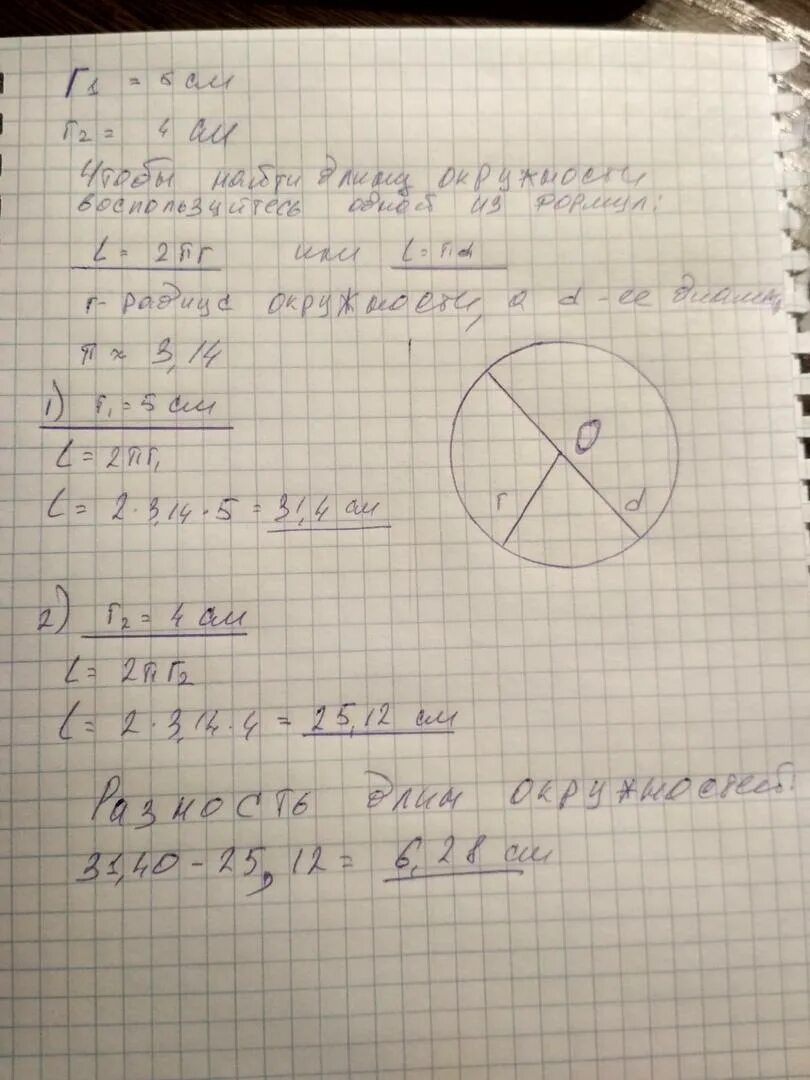 r₁ = 5 см
r₂ = 4 см
Чтобы найти длину окружности
воспользуйтесь одной из формул:
L = 2πr или L = πd
r - радиус окружности, а d - ее
π ≈ 3,14
1) r₁ = 5 см
L = 2πr₁
L = 2 · 3,14 · 5 = 31,4 см
O
r
d
2) r₂ = 4 см
L = 2πr₂
L = 2 · 3,14 · 4 = 25,12 см
Разность длин окружностей:
31,40 - 25,12 = 6,28 см